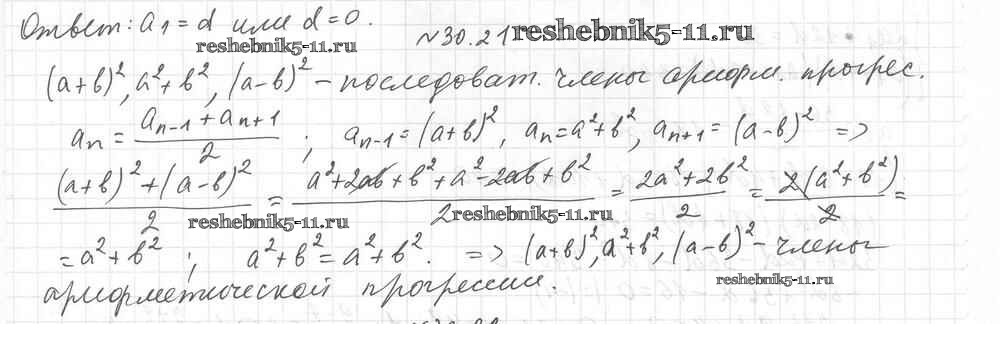 Ответ: a₁ = d или d = 0.
reshebnik5-11.ru
№30.21 reshebnik5-11.ru
(a+b)², a²+b², (a-b)² – последоват. члены арифм. прогрес.
aₙ = (aₙ₋₁ + aₙ₊₁)/2 ; aₙ₋₁ = (a+b)², aₙ = a²+b², aₙ₊₁ = (a-b)² =>
((a+b)²+(a-b)²)/2 = (a²+2ab+b²+a²-2ab+b²)/2 = (2a²+2b²)/2 = 2(a²+b²)/2 =
reshebnik5-11.ru reshebnik5-11.ru
= a²+b² ; a²+b² = a²+b². => (a+b)², a²+b², (a-b)² – члены
арифметической прогрессии.
reshebnik5-11.ru